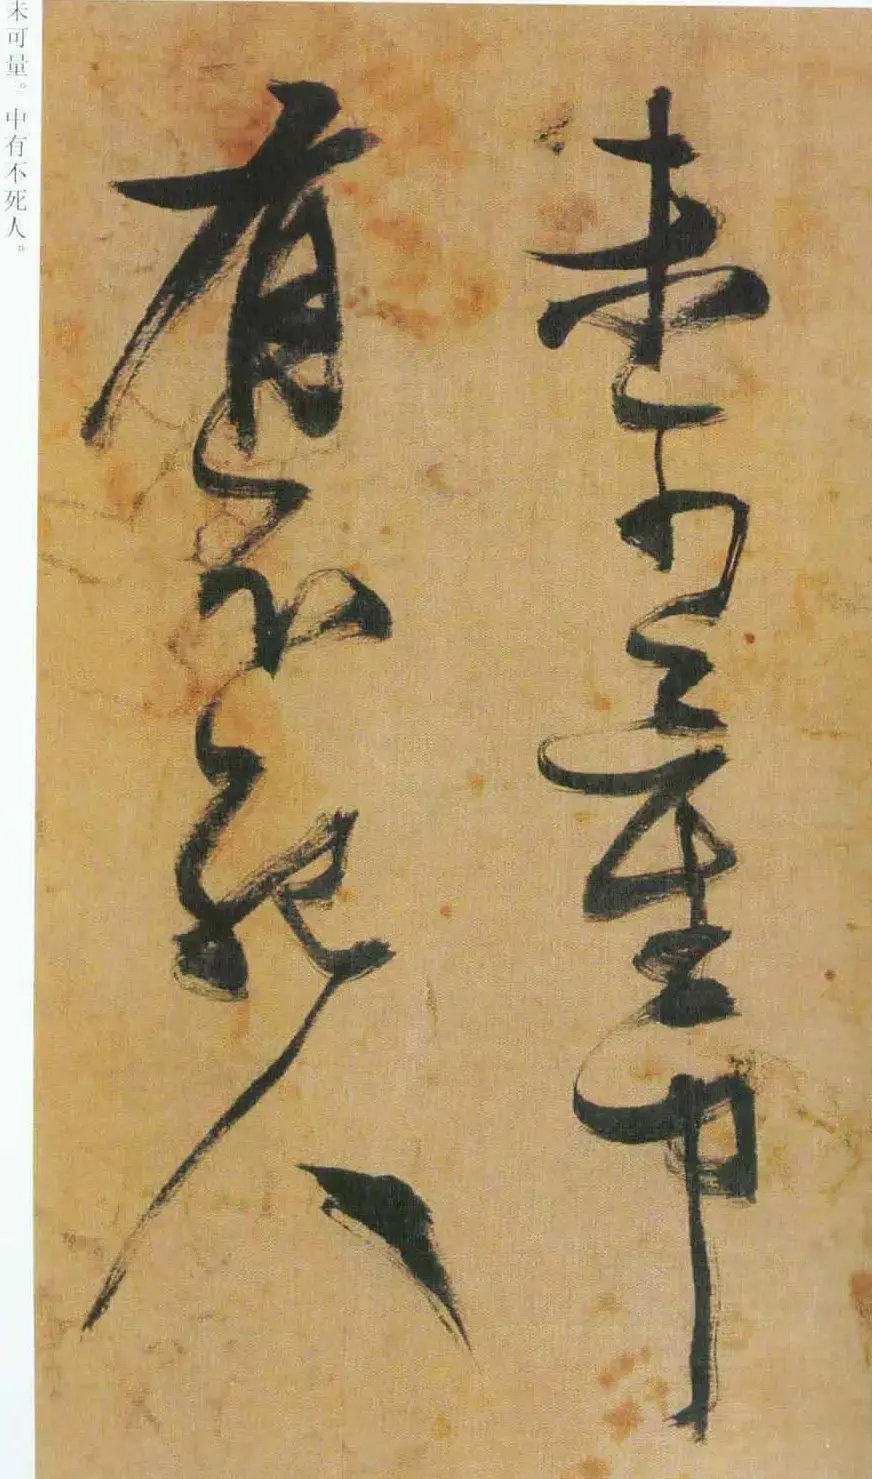 未可量中
有不死人
未可量。中有不死人。